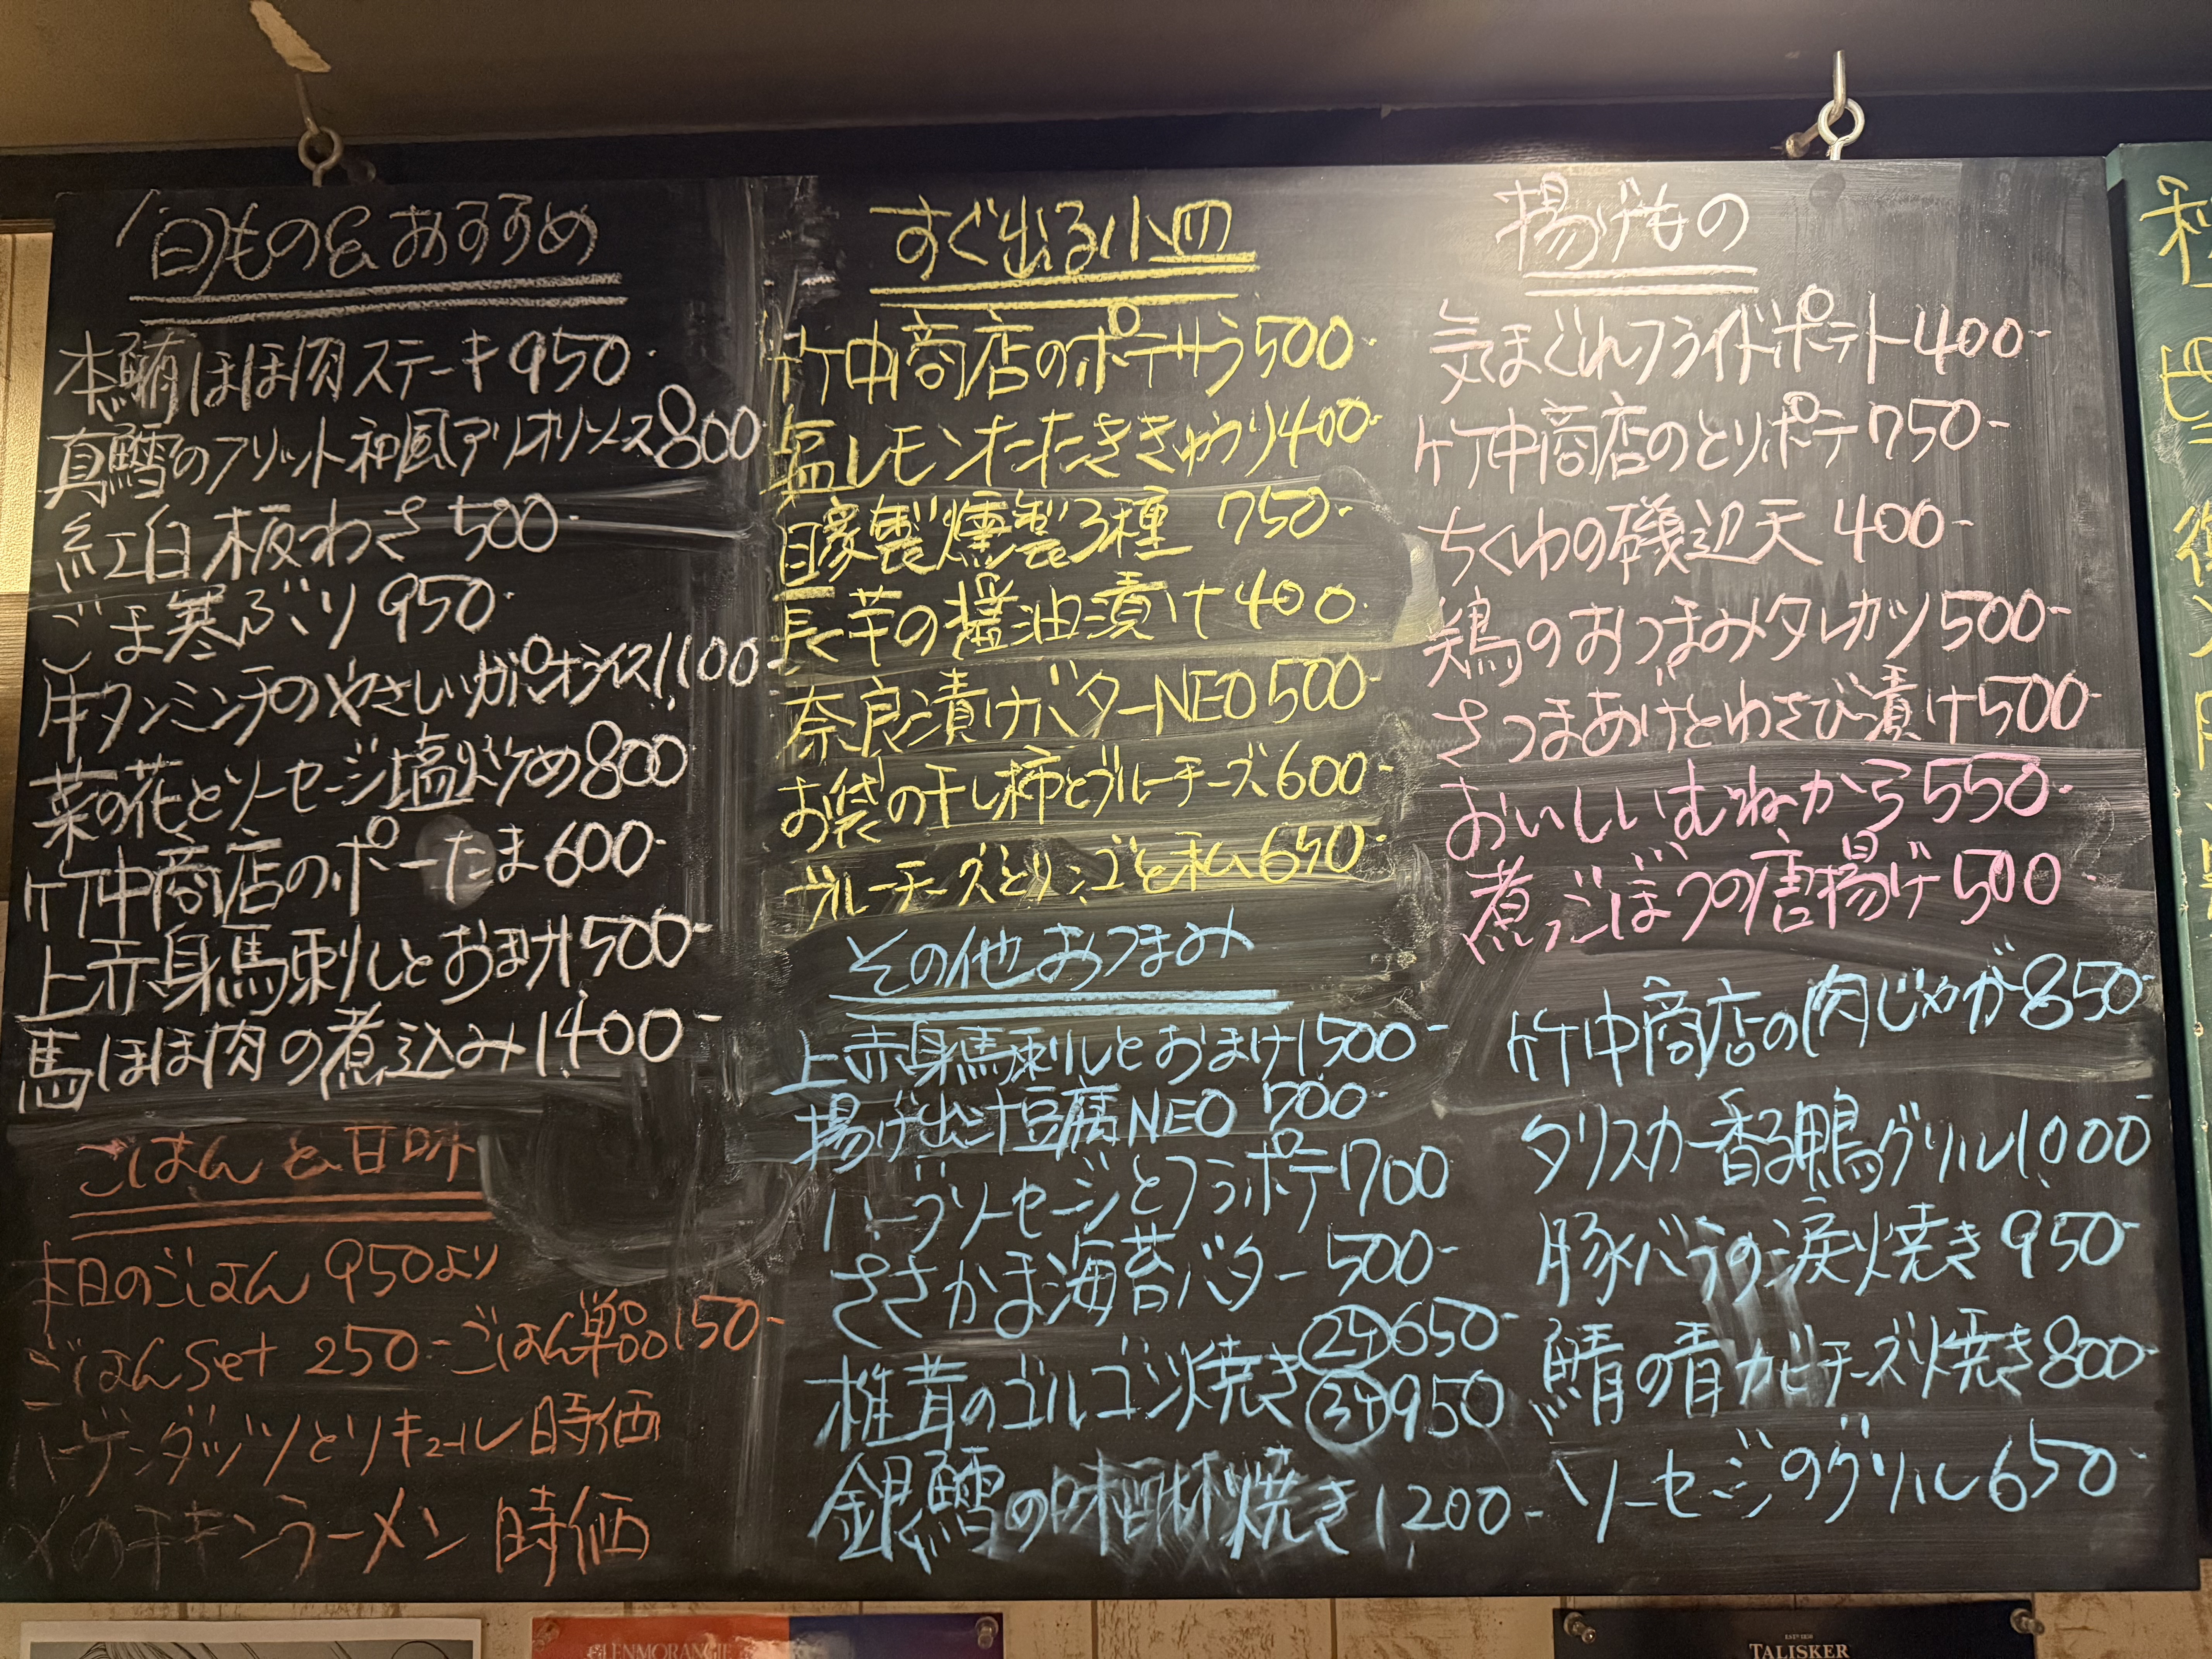 旬もの&おすすめ
本鮪ほほ肉ステーキ950-
真鱈のフリット和風アリオリソース800
紅白板わさ500-
ごま寒ぶり950-
牛タンミンチのやさしいガパオライス1,100-
菜の花とソーセージ塩炒め800
竹中商店のポーたま600-
上赤身馬刺しとおまけ1500-
馬ほほ肉の煮込み1,400-
ごはんと甘味
本日のごはん 950より
ごはんset 250-ごはん単品150-
ハーゲンダッツとリキュール時価
〆のチキンラーメン 時価
すぐ出る小皿
竹中商店のポテサラ500-
塩レモンたたききゅうり400-
自家製燻製3種 750-
長芋の醤油漬け400-
奈良漬けバターNEO500-
お袋の干し柿とブルーチーズ600-
ブルーチーズとリンゴと私650-
その他おつまみ
上赤身馬刺しとおまけ1500-
揚げ出汁豆腐NEO 700-
ハーブソーセージとフラポテ1700
ささかま海苔バター 500-
椎茸のゴルゴン焼き②ケ650-
③ケ950
銀鱈の味醂焼き1,200-
揚げもの
気まぐれフライドポテト400-
竹中商店のとりポテ750-
ちくわの磯辺天400-
鶏のおつまみタレカツ500-
さつまあげとわさび漬け500-
おいしいむねから550-
煮ごぼうの唐揚げ500-
竹中商店の肉じゃが850-
タリスカー香る鴨グリル1,000-
豚バラの涙焼き950-
鯖の青カビチーズ焼き800-
ソーセージのグリル650-
GLENMORANGIE
TALISKER